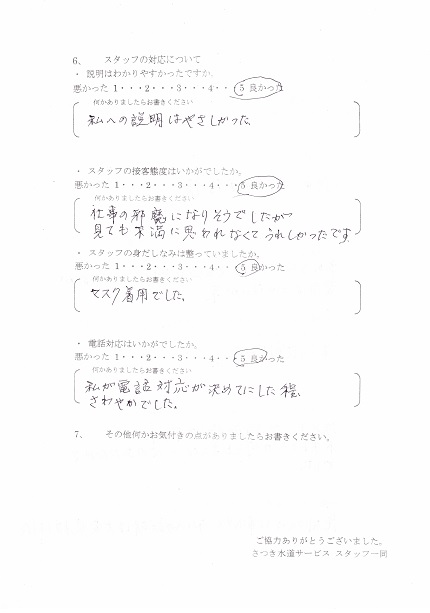 6、 スタッフの対応について
・ 説明はわかりやすかったですか。
悪かった 1・・・2・・・3・・・4・・ 5 良かった
何かありましたらお書きください
私への説明はやさしかった。
・ スタッフの接客態度はいかがでしたか。
悪かった 1・・・2・・・3・・・4・・・5 良かった
何かありましたらお書きください
仕事の邪魔になりそうでしたが
見ても不満に思われなくてうれしかったです
・ スタッフの身だしなみは整っていましたか。
悪かった 1・・・2・・・3・・・4・・・5 良かった
何かありましたらお書きください
マスク着用でした。
・ 電話対応はいかがでしたか。
悪かった 1・・・2・・・3・・・4・・・5 良かった
何かありましたらお書きください
私が電話対応が決めてにした程
さわやかでした。
7、 その他何かお気付きの点がありましたらお書きください。
ご協力ありがとうございました。
さつき水道サービス スタッフ一同